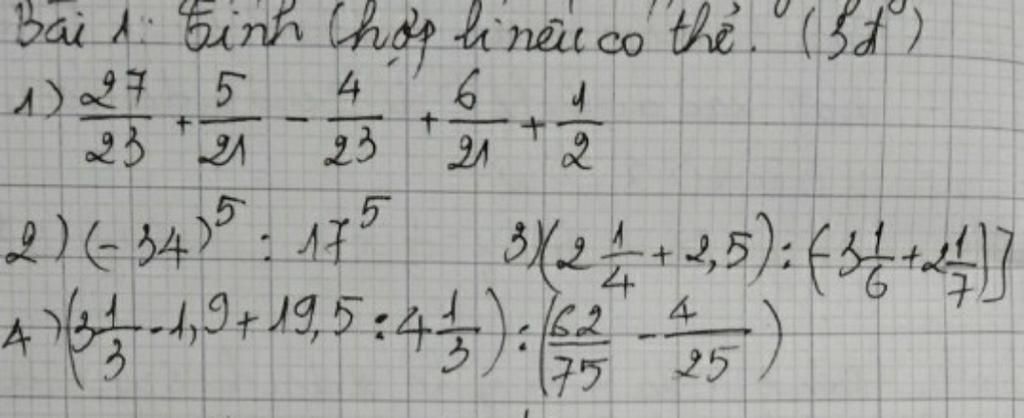 Bài 1: Tính (hợp lí nếu có thể. (3đ)
1) 27/23 + 5/21 - 4/23 + 6/21 + 1/2
2) (-34)^5 : 17^5 3) (2 1/4 + 2,5) : (-3 1/6 + 2 1/7)]
4) (3 1/3 - 1,9 + 19,5 : 4 1/3) : (62/75 - 4/25)